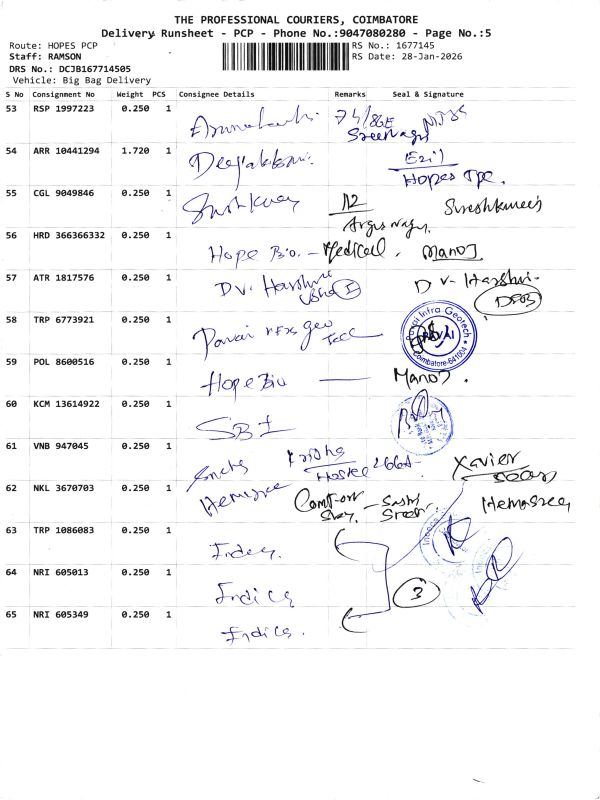 THE PROFESSIONAL COURIERS, COIMBATORE
Delivery Runsheet - PCP - Phone No.:9047080280 - Page No.:5
Route: HOPES PCP
RS No.: 1677145
Staff: RAMSON
RS Date: 28-Jan-2026
DRS No.: DCJB167714505
Vehicle: Big Bag Delivery
S No Consignment No Weight PCS Consignee Details Remarks Seal & Signature
53 RSP 1997223 0.250 1 74/86E
54 ARR 10441294 1.720 1 Hopes
55 CGL 9049846 0.250 1 12 Sureshkumar
56 HRD 366366332 0.250 1 Hope Bio. - Medical. Manoj.
57 ATR 1817576 0.250 1 DV. Harshini DV. Harshni
58 TRP 6773921 0.250 1 Pavai Geo Tech Pavai Infra Geotech PAVAI Coimbatore-641004
59 POL 8600516 0.250 1 Hope Bio Manoj.
60 KCM 13614922 0.250 1 SBI
61 VNB 947045 0.250 1 Hostel Xavier
62 NKL 3670703 0.250 1 Hemasree Comfort Hemasree
63 TRP 1086083 0.250 1
64 NRI 605013 0.250 1 Indica 3
65 NRI 605349 0.250 1 Indica.